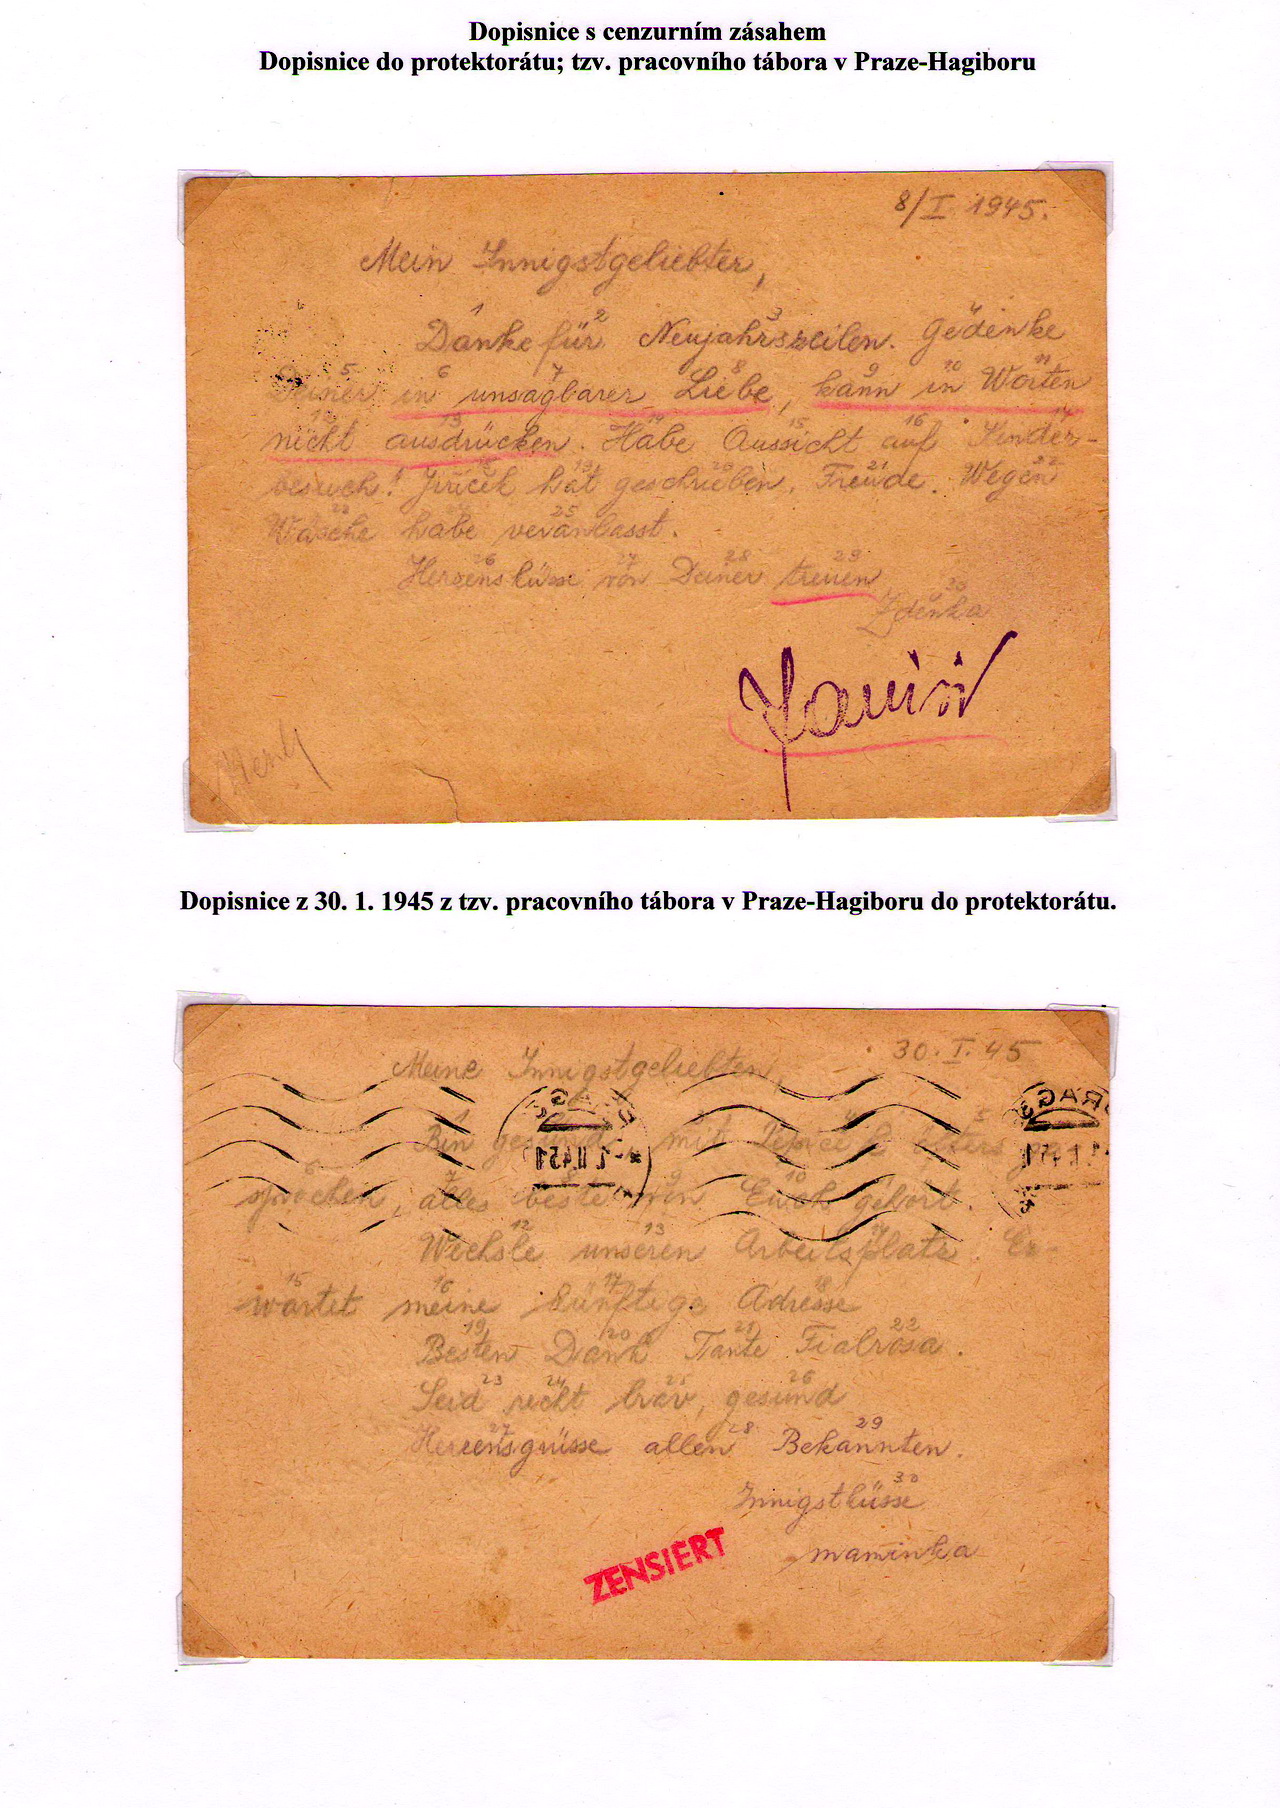 Dopisnice s cenzurním zásahem
Dopisnice do protektorátu; tzv. pracovního tábora v Praze-Hagiboru
8/I 1945.
Mein Innigstgeliebter,
1 2 3 4
Danke für Neujahrszeilen. Gedenke
5 6 7 8 9 10 11
Deiner in unsagbarer Liebe, kann in Worten
12 13 14 15 16 17
nicht ausdrücken. Habe Aussicht auf Kinder-
18 19 20 21 22
besuch! Jiříček hat geschrieben. Freude. Wegen
23 24 25
Wäsche habe veranlasst.
26 27 28 29
Herzensküsse von Deiner treuen
30
Zdenka
Dopisnice z 30. 1. 1945 z tzv. pracovního tábora v Praze-Hagiboru do protektorátu.
30. I. 45
Meine Innigstgeliebten,
1 4 5
Bin gesund, mit öfters ge-
6 7 8 9 10
sprochen, alles beste von Euch gehört.
12 13
Wechsle unseren Arbeitsplatz. Er-
15 16 17 18
wartet meine künftige Adresse
19 20 21 22
Besten Dank Tante Fialrosa.
23 24 25 26
Seid recht brav, gesund
27 28 29
Herzensgrüsse allen Bekannten.
30
Innigstküsse
maminka
ZENSIERT